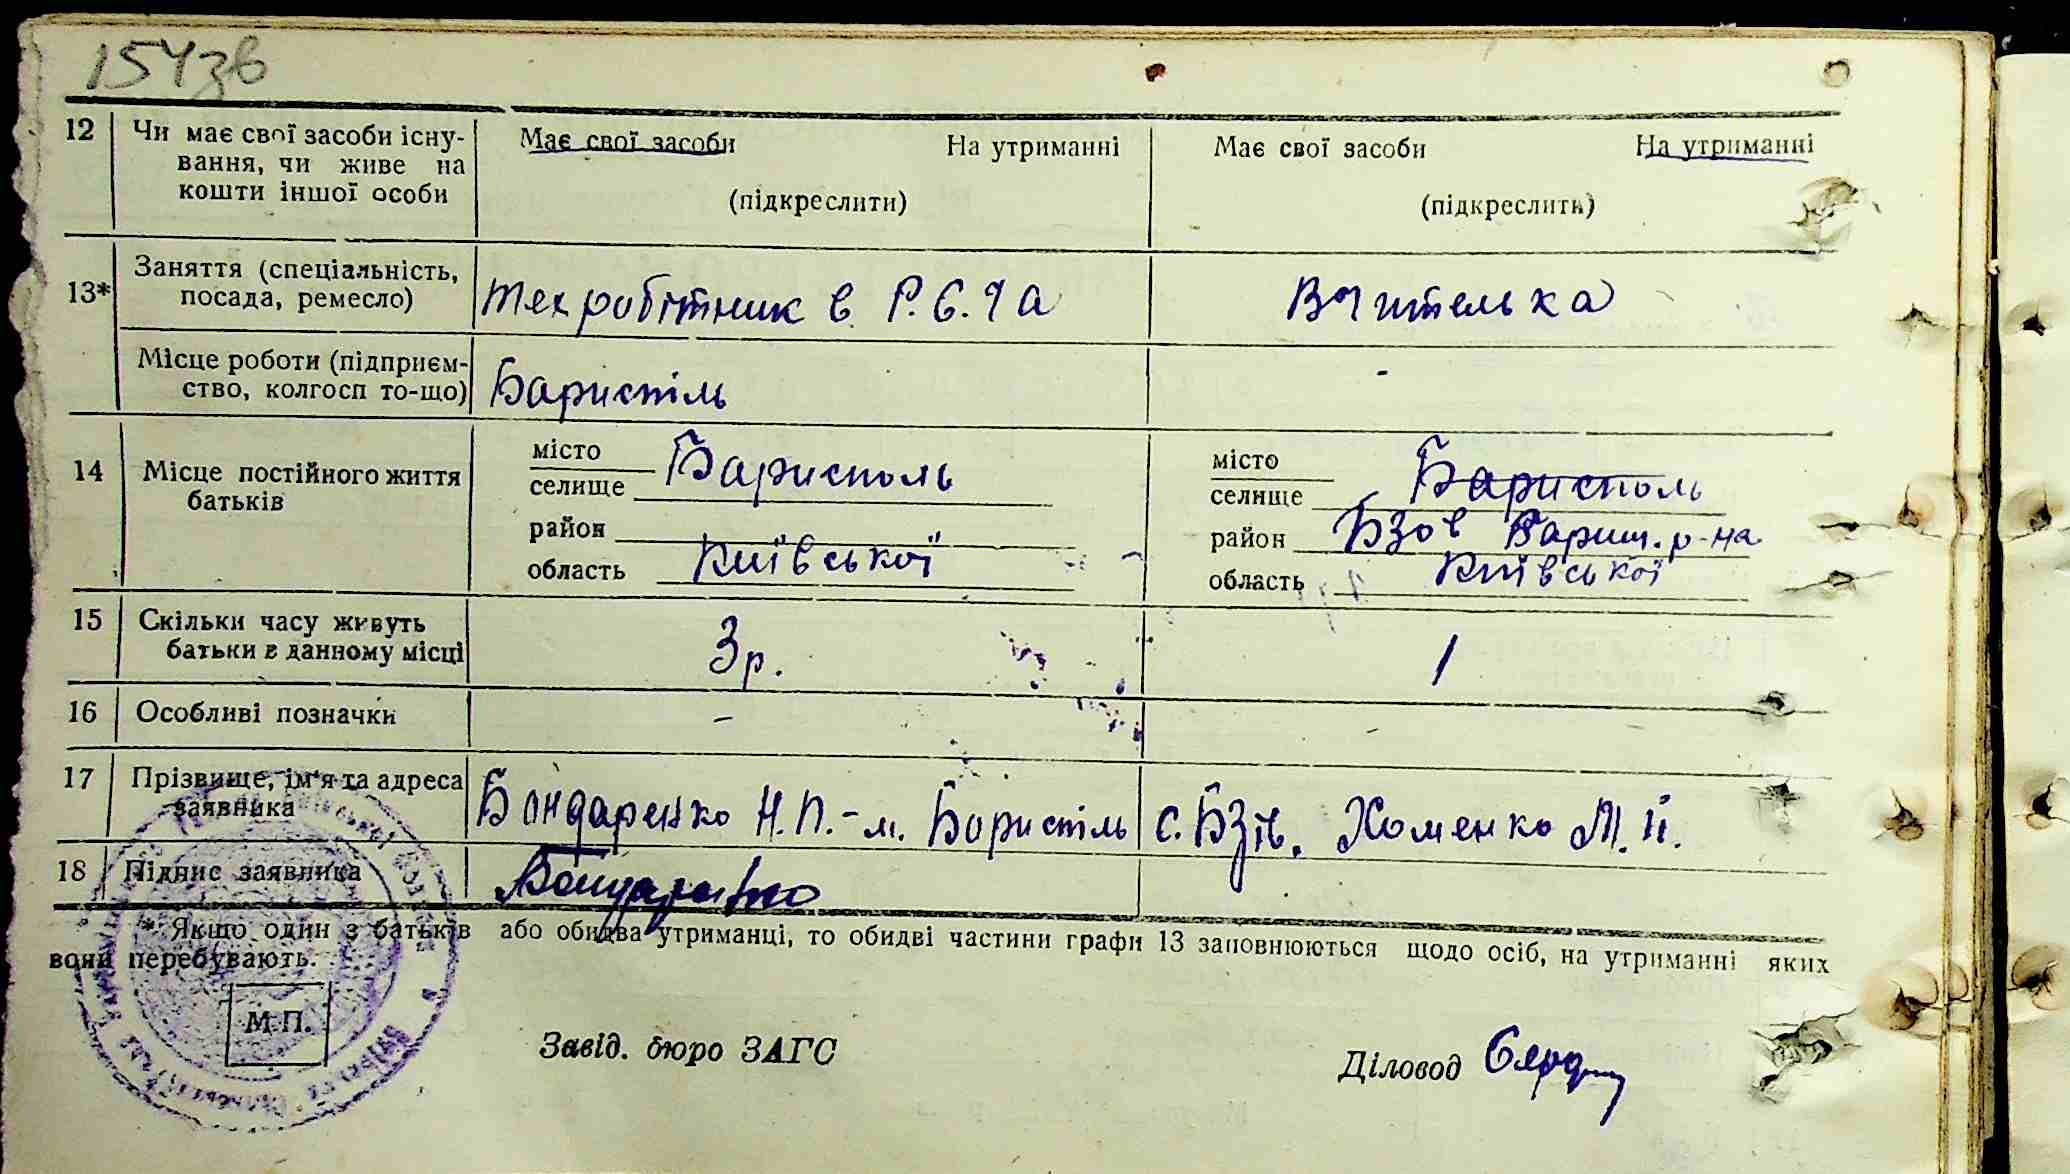 154зв
12 Чи має свої засоби існу- Має свої засоби На утриманні Має свої засоби На утриманні
вання, чи живе на
кошти іншої особи (підкреслити) (підкреслить)
13* Заняття (спеціальність,
посада, ремесло) Техробітник в Р.Є.Ча Вчителька
Місце роботи (підприєм-
ство, колгосп то-що) Бариспіль -
14 Місце постійного життя
батьків
місто
селище Барисполь
район
область Київської
місто
селище Барисполь
район Бзов Бариш. р-на
область Київської
15 Скільки часу живуть
батьки в данному місці 3 р. 1
16 Особливі позначки - -
17 Прізвище, ім'я та адреса
заявника Бондаренко Н.П.- м. Бориспіль с. Бзів. Хоменко М.Й.
18 Підпис заявника Бондаренко
* Якщо один з батьків або обидва утриманці, то обидві частини графи 13 заповнюються щодо осіб, на утриманні яких
вони перебувають.
М.П.
Завід. бюро ЗАГС
Діловод